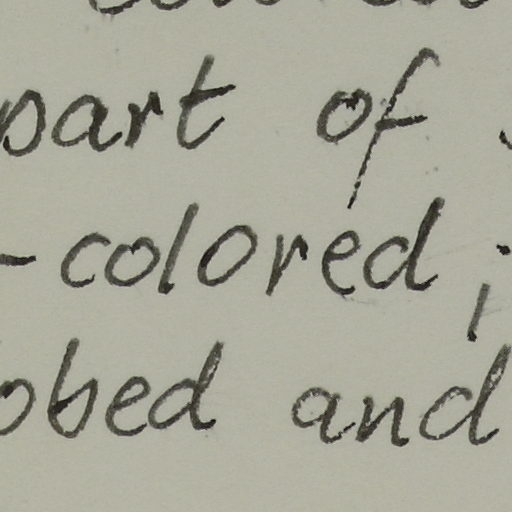 part of
-colored,
obed and